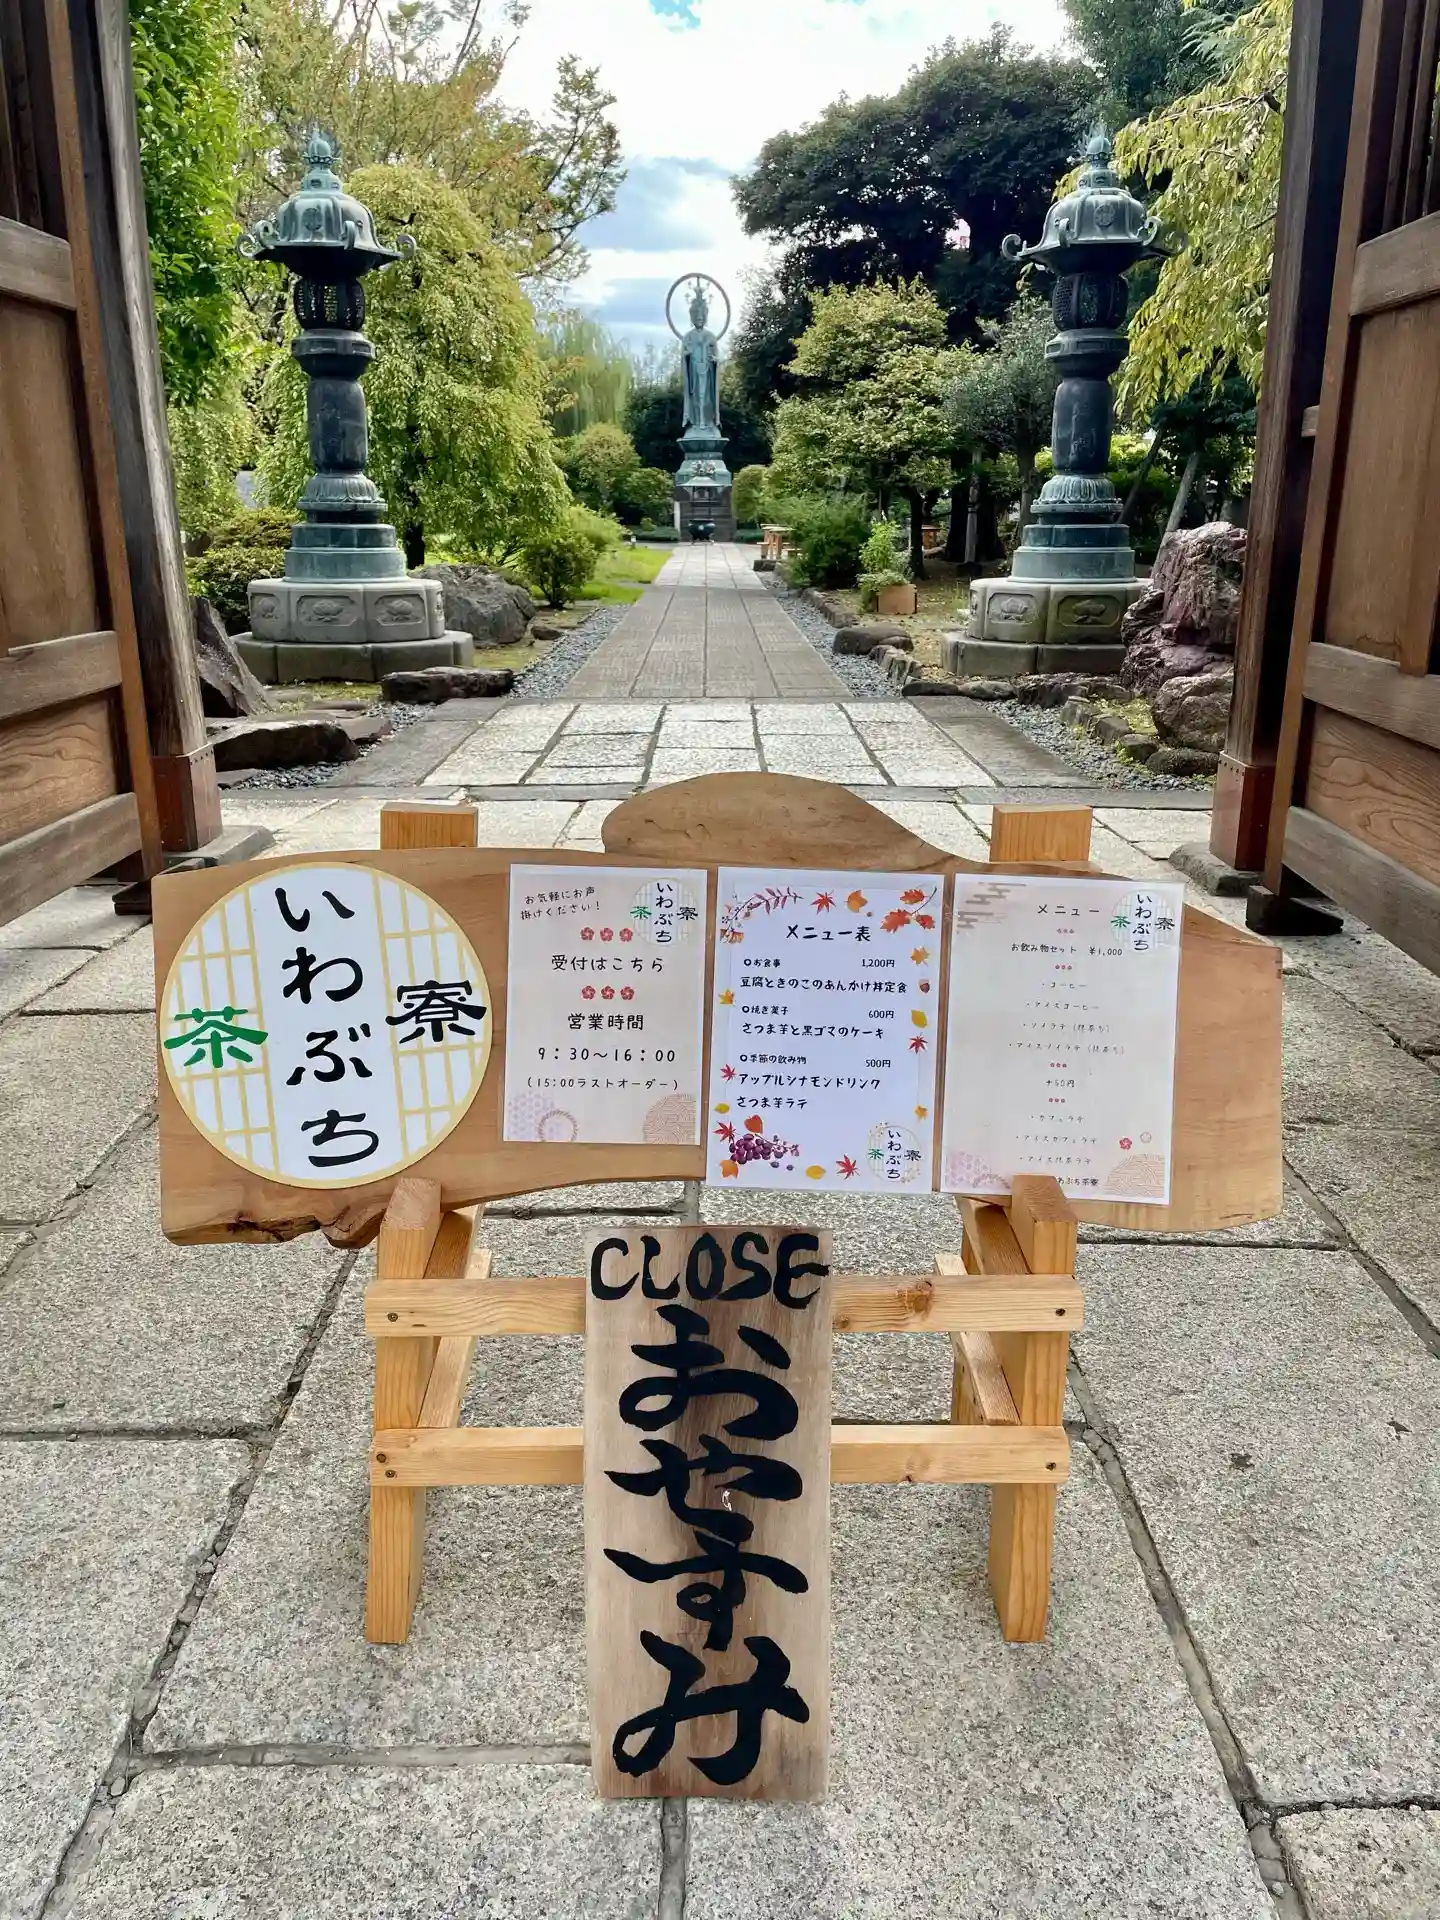 いわぶち
茶寮
お気軽にお声
掛けください！
いわぶち
茶寮
受付はこちら
営業時間
9：30～16：00
(15:00ラストオーダー)
メニュー表
○お食事 1,200円
豆腐ときのこのあんかけ丼定食
○焼き菓子 600円
さつま芋と黒ゴマのケーキ
○季節の飲み物 500円
アップルシナモンドリンク
さつま芋ラテ
いわぶち
茶寮
メニュー
いわぶち
茶寮
お飲み物セット ¥1,000
・コーヒー
・アイスコーヒー
・ソイラテ（抹茶も）
・アイスソイラテ（抹茶も）
+50円
・カフェラテ
・アイスカフェラテ
・アイス抹茶ラテ
ぶち茶寮
CLOSE
おやすみ